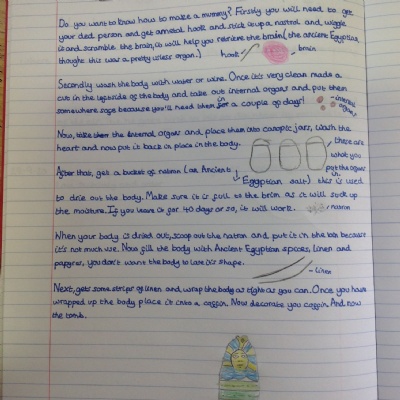 Do you want to know how to make a mummy? Firstly you will need to get
your ded person and get a metal hook and stick is up a nostrol and wiggle
is and scramble the brain, is will help you retrieve the brain (the ancient Egyptian
thought this was a pretty usless organ.) hook brain
Secondly wash the body with water or wine. Once it's very clean made a
cut in the leftside of the body and take out internal organs and put them
somewhere safe because you'll need them in for a couple of days! internal
organs
Now, take them the internal organs and place them into canopic jars, wash the
heart and now put it back in place in the body. these are
what you
put the organs
in.
After that, get a bucket of natron (an Ancient
Egyptian salt) this is used
to drie out the body. Make sure it is full to the brim as it will suck up
the moisture. If you leave it for 40 days or so, it will work. natron
When your body is dried out, scoop out the natron and put it in the bin because
it's not much use. Now fill the body with Ancient Egyptian spices, linen and
papyrus, you don't want the body to lose it's shape.
linen
Next, gets some strips of linen and wrap the body as tight as you can. Once you have
wrapped up the body place it into a coffin. Now decorate you coffin. And now
the tomb.